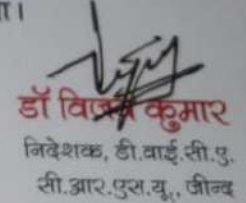 ा।
डॉ विजय कुमार
निदेशक, डी.वाई.सी.ए.
सी.आर.एस.यू., जीन्द